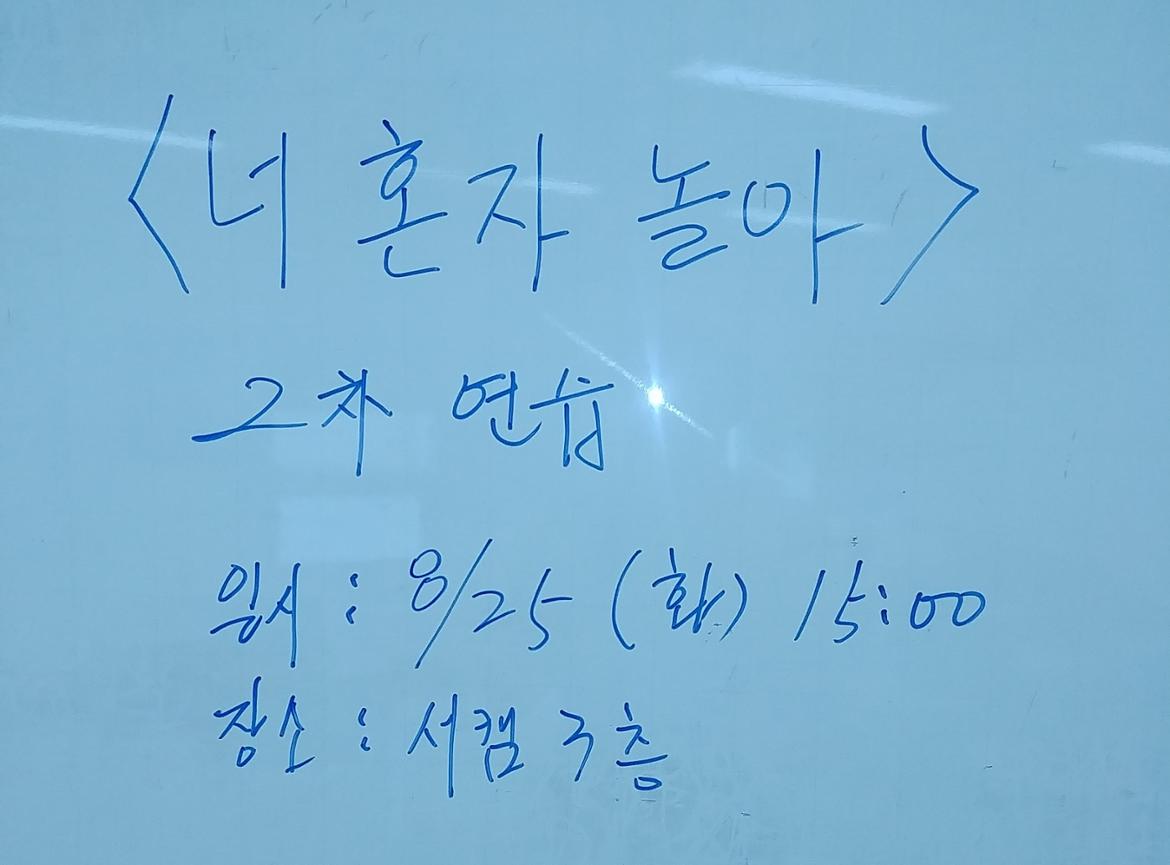 <너 혼자 놀아>
2차 연습
일시 : 8/25 (화) 15:00
장소 : 서캠 3층